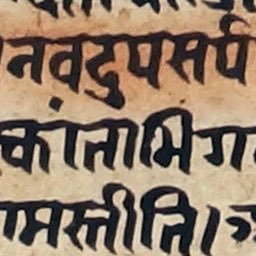 नवदुपसर्प
कांताभिग
मस्तीति।